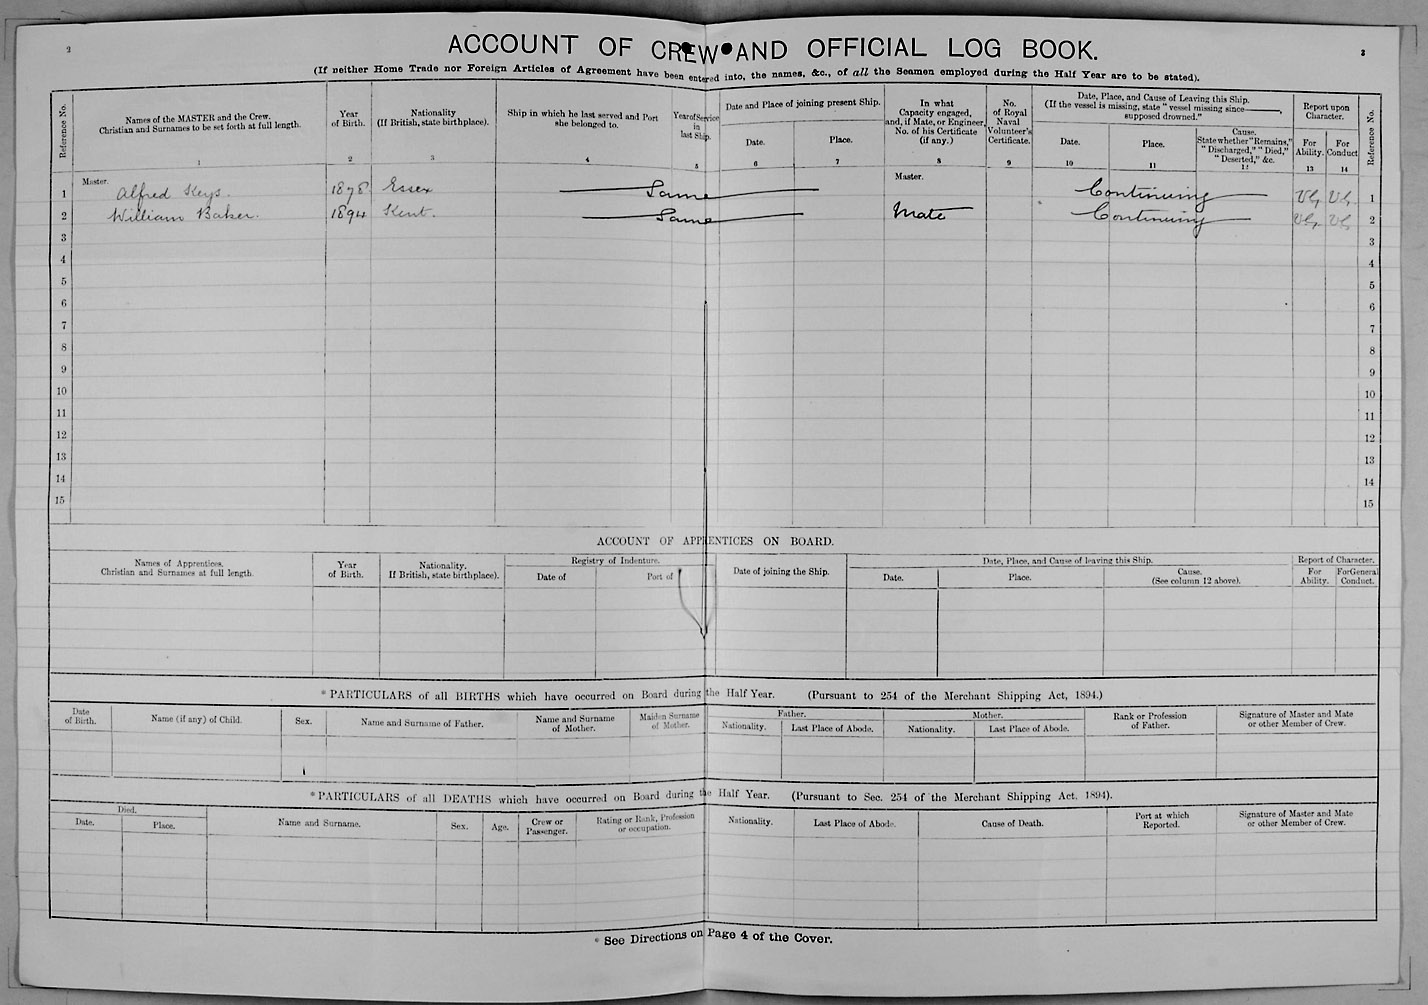 2
3
ACCOUNT OF CREW AND OFFICIAL LOG BOOK.
(If neither Home Trade nor Foreign Articles of Agreement have been entered into, the names, &c., of all the Seamen employed during the Half Year are to be stated).
Reference No.
Names of the MASTER and the Crew.
Christian and Surnames to be set forth at full length.
1
Year
of Birth.
2
Nationality
(If British, state birthplace).
3
Ship in which he last served and Port
she belonged to.
4
Year of Service
in
last Ship.
5
Date and Place of joining present Ship.
Date.
6
Place.
7
In what
Capacity engaged,
and, if Mate, or Engineer,
No. of his Certificate
(if any.)
8
No.
of Royal
Naval
Volunteer's
Certificate.
9
Date, Place, and Cause of Leaving this Ship.
(If the vessel is missing, state "vessel missing since———,
supposed drowned."
Date.
10
Place.
11
Cause.
State whether "Remains,"
"Discharged," "Died,"
"Deserted," &c.
12
Report upon
Character.
For
Ability.
13
For
Conduct
14
Reference No.
1 Master. Alfred Keys. 1878 Essex Same Master. Continuing VG VG 1
2 William Baker. 1894 Kent. Same Mate Continuing VG VG 2
3 3
4 4
5 5
6 6
7 7
8 8
9 9
10 10
11 11
12 12
13 13
14 14
15 15
ACCOUNT OF APPRENTICES ON BOARD.
Names of Apprentices.
Christian and Surnames at full length.
Year
of Birth.
Nationality.
If British, state birthplace).
Registry of Indenture.
Date of
Port of
Date of joining the Ship.
Date, Place, and Cause of leaving this Ship.
Date.
Place.
Cause.
(See column 12 above).
Report of Character.
For
Ability.
For General
Conduct.
*PARTICULARS of all BIRTHS which have occurred on Board during the Half Year. (Pursuant to 254 of the Merchant Shipping Act, 1894.)
Date
of Birth.
Name (if any) of Child.
Sex.
Name and Surname of Father.
Name and Surname
of Mother.
Maiden Surname
of Mother.
Father.
Nationality.
Last Place of Abode.
Mother.
Nationality.
Last Place of Abode.
Rank or Profession
of Father.
Signature of Master and Mate
or other Member of Crew.
*PARTICULARS of all DEATHS which have occurred on Board during the Half Year. (Pursuant to Sec. 254 of the Merchant Shipping Act, 1894).
Died.
Date.
Place.
Name and Surname.
Sex.
Age.
Crew or
Passenger.
Rating or Rank, Profession
or occupation.
Nationality.
Last Place of Abode.
Cause of Death.
Port at which
Reported.
Signature of Master and Mate
or other Member of Crew.
* See Directions on Page 4 of the Cover.